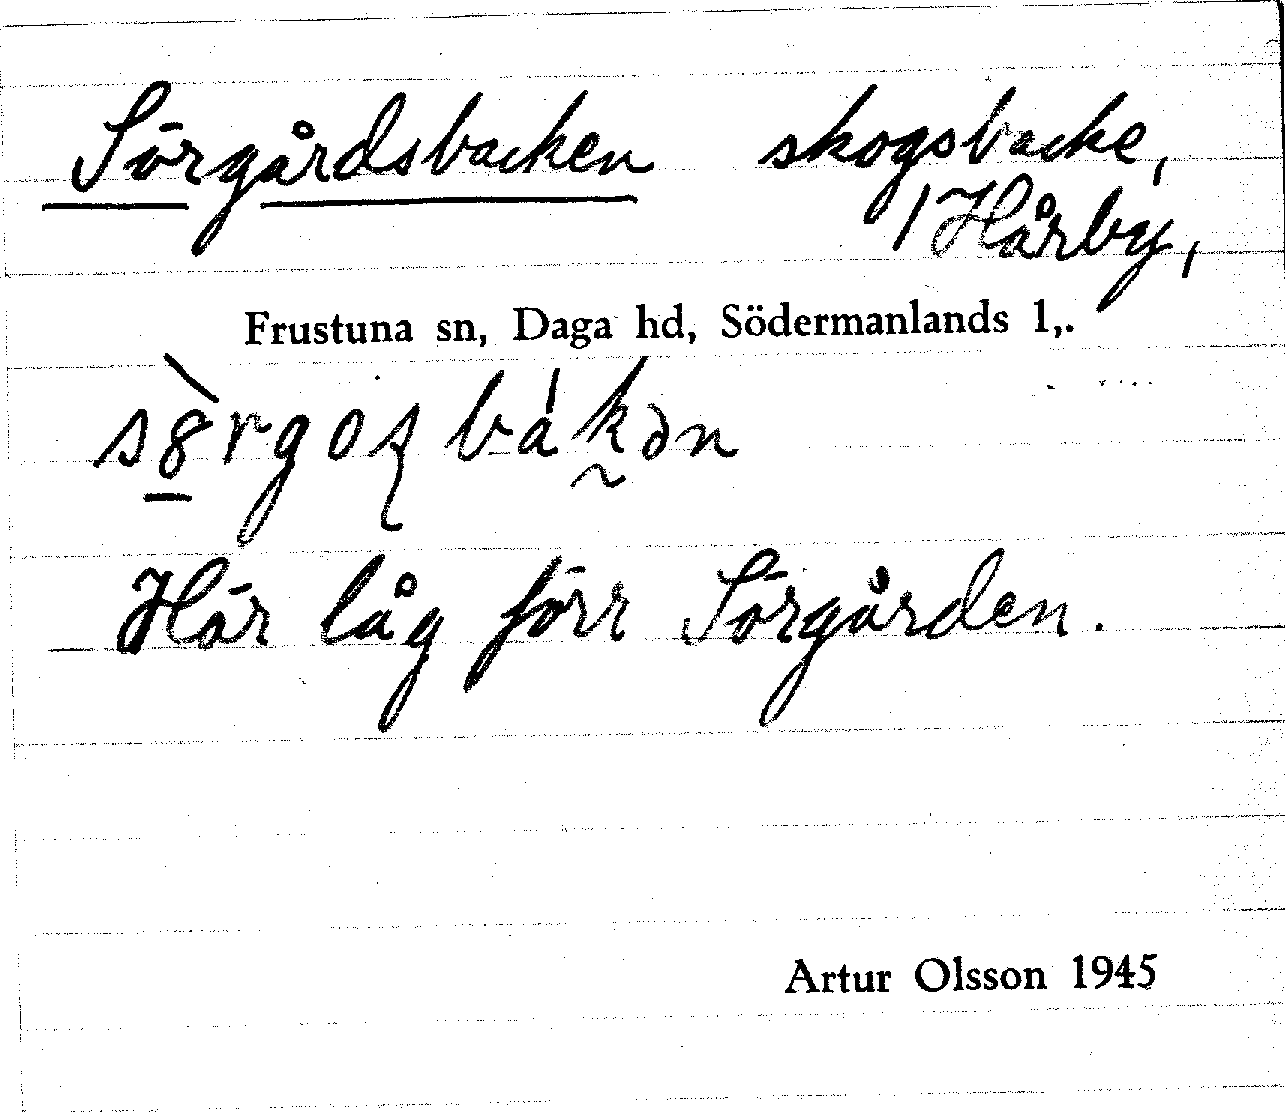 Sörgårdsbacken skogsbacke,
/ Hårby,
Frustuna sn, Daga hd, Södermanlands l,.
Här låg förr Sörgården.
Artur Olsson 1945